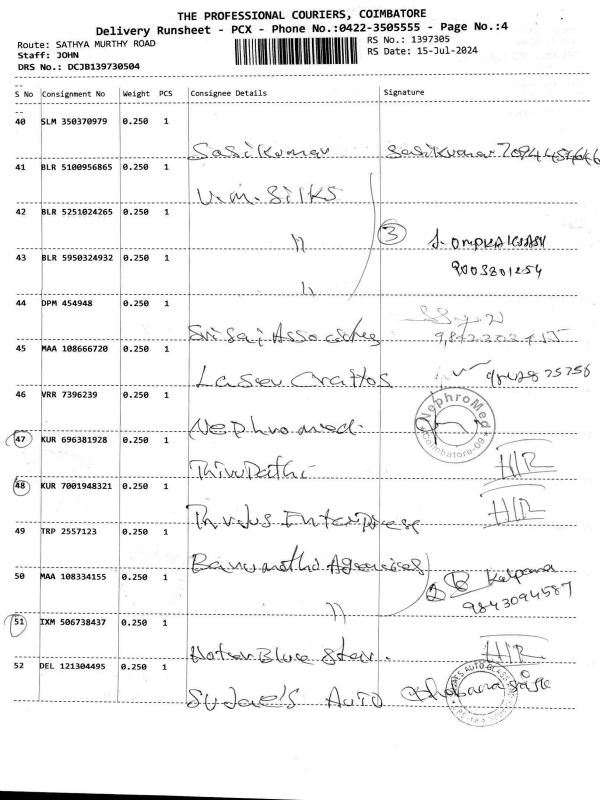 THE PROFESSIONAL COURIERS, COIMBATORE
Delivery Runsheet - PCX - Phone No.:0422-3505555 - Page No.:4
Route: SATHYA MURTHY ROAD RS No.: 1397305
Staff: JOHN RS Date: 15-Jul-2024
DRS No.: DCJB139730504
S No Consignment No Weight PCS Consignee Details Signature
40 SLM 350370979 0.250 1
Sasikumar Sasikumar
41 BLR 5100956865 0.250 1
V.M.Silks
42 BLR 5251024265 0.250 1
〃 3 J. OMPRAKASAN
43 BLR 5950324932 0.250 1
9003801254
〃
44 DPM 454948 0.250 1
Sri Sai Associates
45 MAA 108666720 0.250 1
Laser Crafts
46 VRR 7396239 0.250 1
NephroMed
Coimbatore-09
Nephromed.
47 KUR 696381928 0.250 1
Thirupathi H/R
48 KUR 7001948321 0.250 1
Enterprese H/R
49 TRP 2557123 0.250 1
Agencies
50 MAA 108334155 0.250 1
2 Kalpana
9843094587
〃
51 IXM 506738437 0.250 1
Blue Star. H/R
52 DEL 121304495 0.250 1
SuJae's Auto